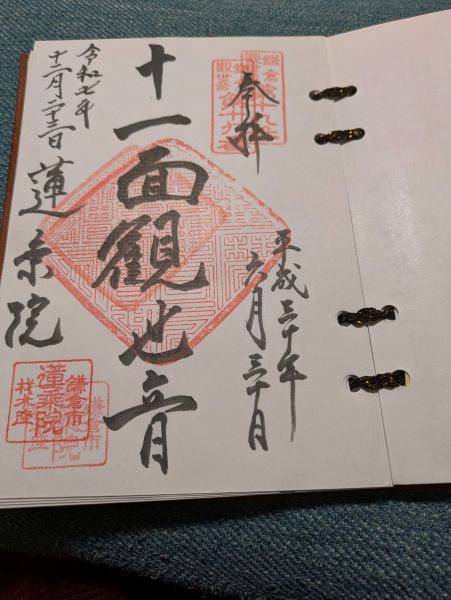 奉拝
平成三十年
六月三十日
十一面觀世音
令和七年
十二月二十三日
蓮乗院
鎌倉
觀世音
第十九番
鎌倉市
材木座
蓮乗院